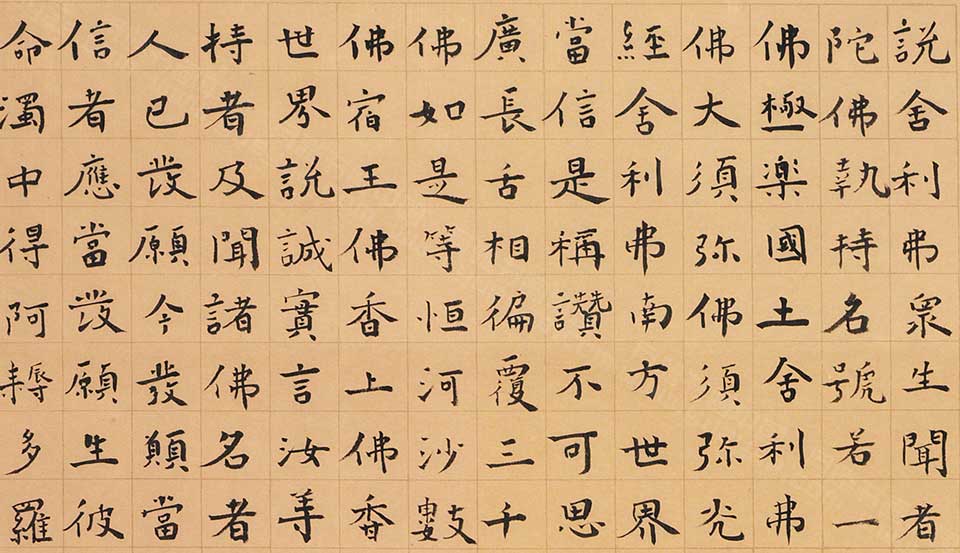 說舍利弗眾生聞者
陀佛執持名號若一
佛極楽國土舍利弗
佛大須弥佛須弥光
經舍利弗南方世界
當信是稱讚不可思
廣長舌相徧覆三千
佛如是等恒河沙數
佛宿王佛香上佛香
世界說誠實言汝等
持者及聞諸佛名者
人已發願今發願當
信者應當發願生彼
命濁中得阿耨多羅